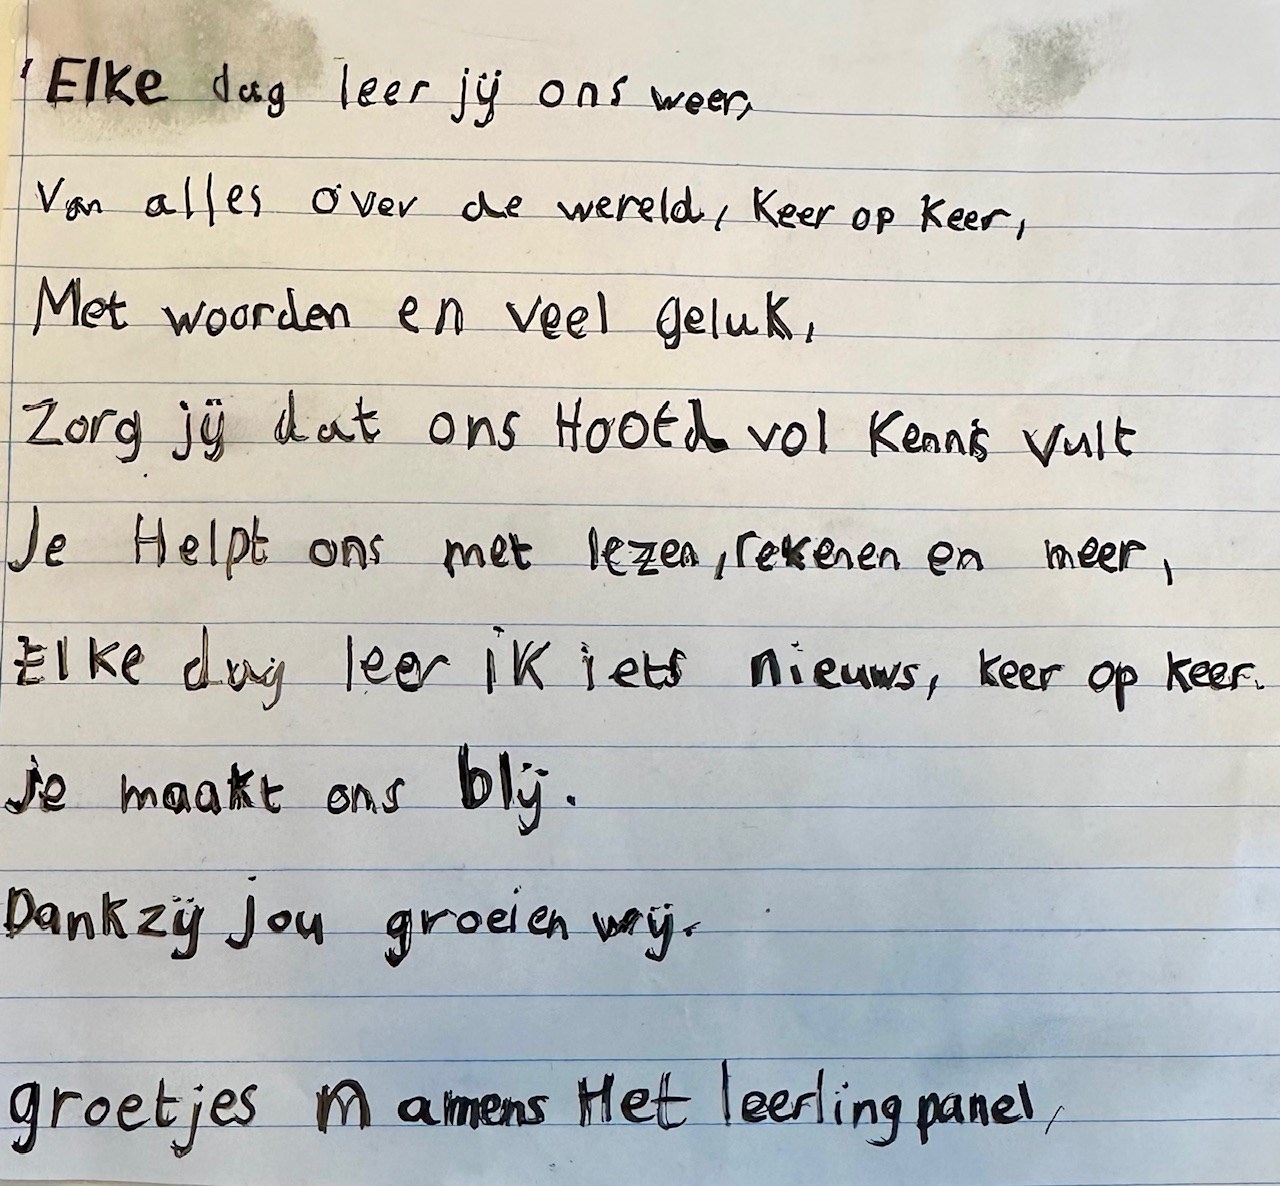 Elke dag leer jij ons weer,
Van alles over de wereld, keer op keer,
Met woorden en veel geluk,
Zorg jij dat ons Hoofd vol kennis vult
Je Helpt ons met lezen, rekenen en meer,
Elke dag leer ik iets nieuws, keer op keer.
Je maakt ons blij.
Dankzij jou groeien wij.
groetjes M amens Het leerlingpanel,